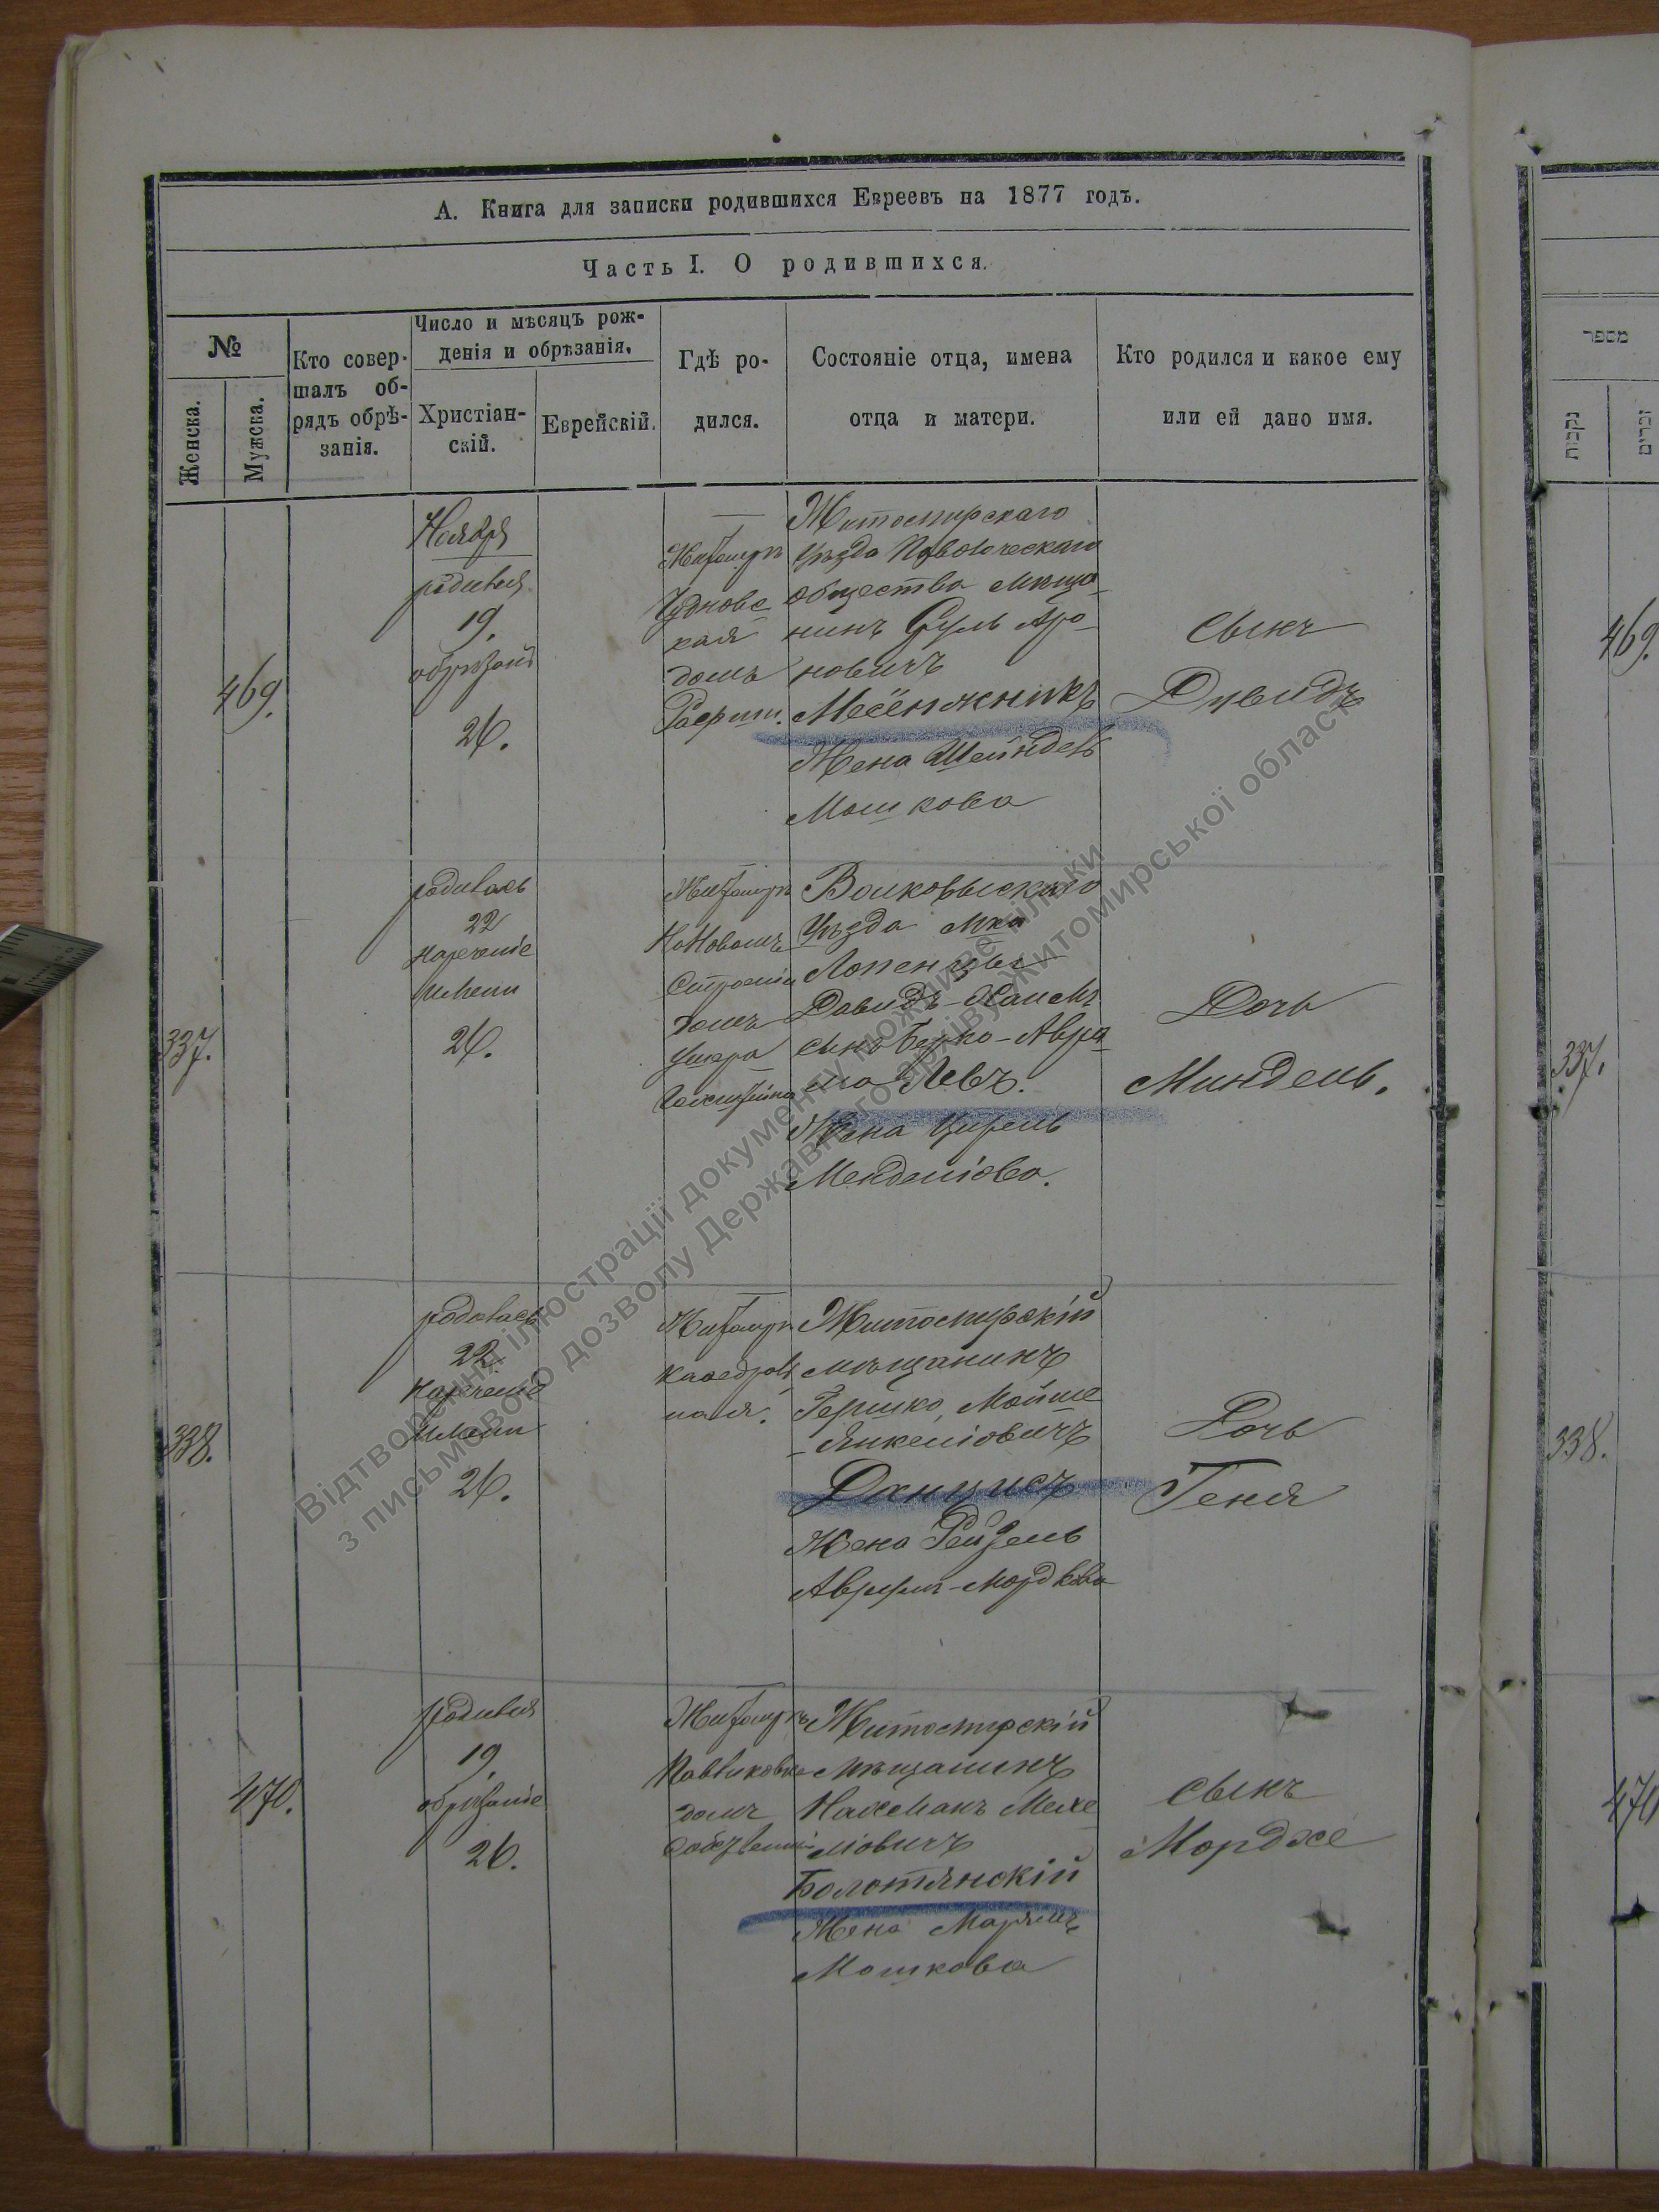 А. Книга для записки родившихся Евреевъ на 1877 годъ.
Часть I. О родившихся.
№
Женска.
Мужска.
Кто совер-
шалъ об-
рядъ обрѣ-
занія.
Число и мѣсяцъ рож-
денія и обрѣзанія.
Христіан-
скій.
Еврейскій.
Гдѣ ро-
дился.
Состояніе отца, имена
отца и матери.
Кто родился и какое ему
или ей дано имя.
469.
Ноября
родился
19.
26.
Житомиръ
Чудновс
кая
домъ
Житомирскаго
уѣзда
общества мѣща-
нинъ Сруль Аро-
новичъ
Жена Шейндель
Мошкова
Сынъ
Дувидъ
337.
родилась
22
нареченіе
имени
26.
Житомиръ
домъ
Волковыскаго
Уѣзда Мка
Давидъ-Хаимъ
сынъ Берко-Авра
ма Левъ.
Жена Цирель
Менделіова.
Дочь
Миндель.
338.
родилась
22
нареченіе
имени
26.
Житомиръ
Каѳедраль
ная.
Житомирскій
мѣщанинъ
Гершко, Мойше
-Янкеліовичъ
Данцисъ
Жена Рейзель
Дочь
Геня
470.
родился
19
обрѣзаніе
26.
Житомиръ
домъ
Житомирскій
мѣщанинъ
Нахманъ Меке
ліовичъ
Болотянскій
Жена Марямъ
Мошкова
Сынъ
Мордхе
מספר
נקבות
זכרים
469.
337.
338.
470
Відтворення ілюстрації документу можливе тільки
з письмового дозволу Державного архіву Житомирської області